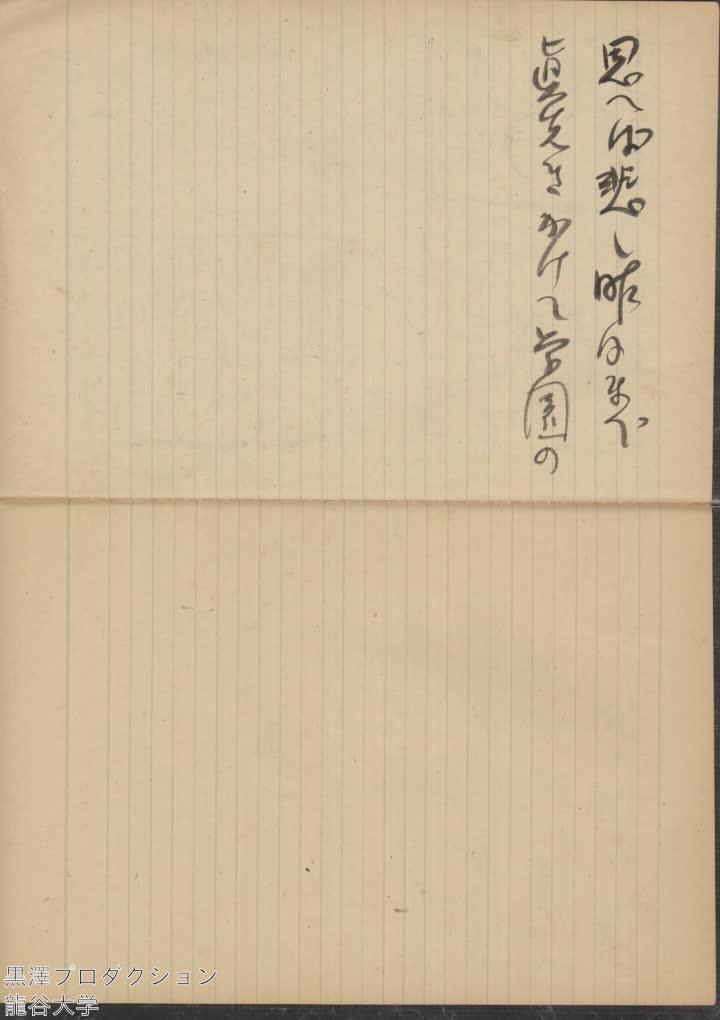 思へば悲し昨日まで
真先きかけて学園の
黒澤プロダクション
龍谷大学